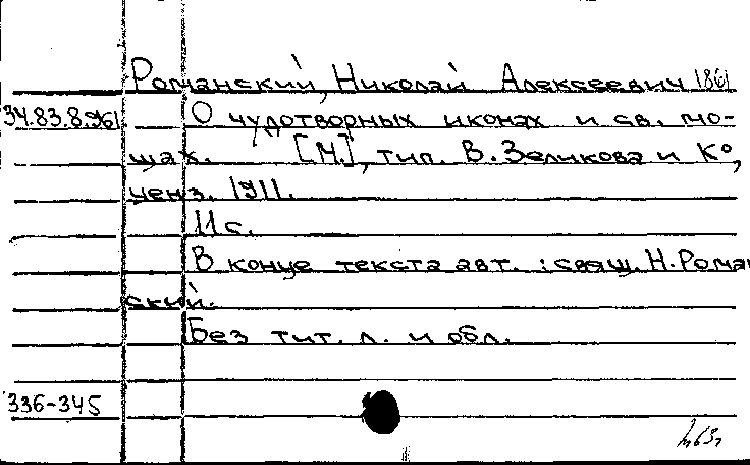 Романский, Николай Алексеевич 1861
34.83.8.961 О чудотворных иконах и св. мо-
щах. [М.], тип. В. Зеликова и К°,
ценз. 1911.
11 с.
В конце текста авт.: свящ. Н. Роман
ский.
Без тит. л. и обл.
336-345